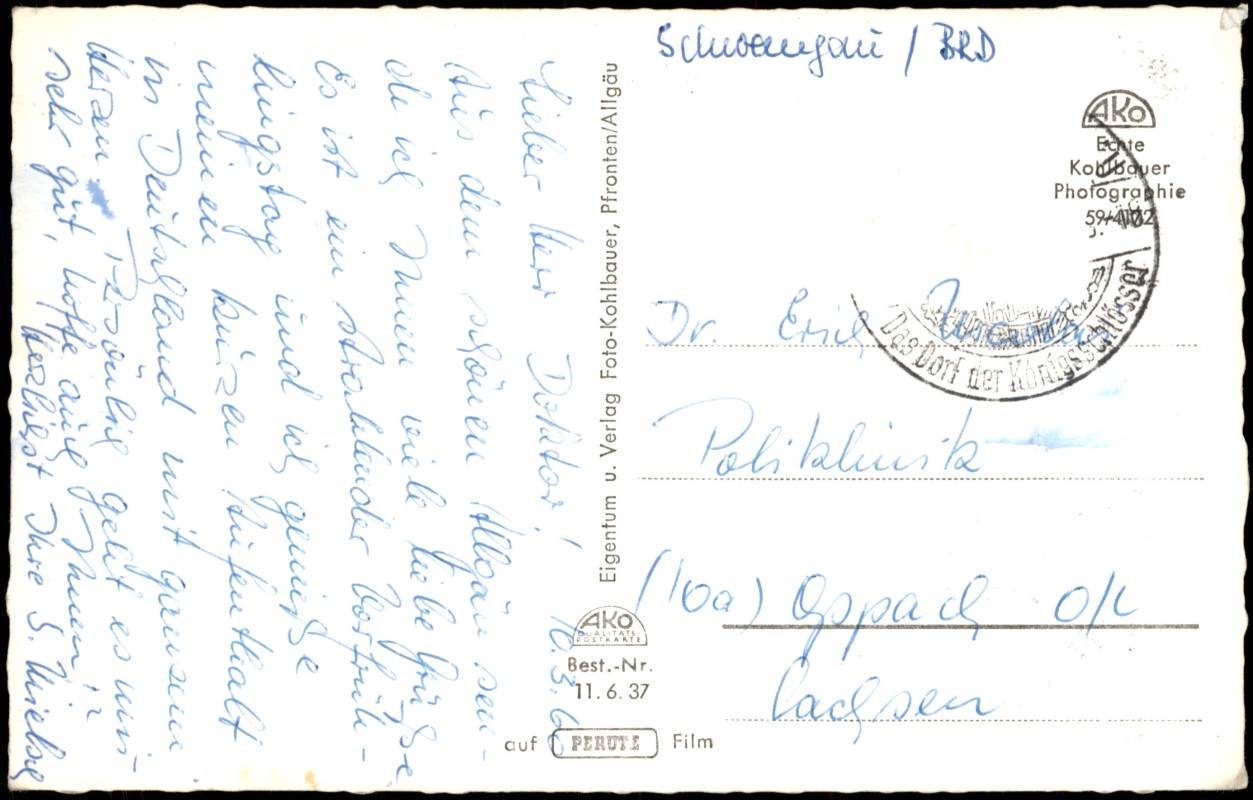 Schwangau / BRD
AKO
Echte
Kohlbauer
Photographie
59/4102
Das Dorf der Königsschlösser
Dr. Erich
Poliklinik
(10a) Oppach O/L
Sachsen
Eigentum u. Verlag Foto-Kohlbauer, Pfronten/Allgäu
AKO
QUALITÄTS-
POSTKARTE
Best.-Nr.
11. 6. 37
auf PERUTZ Film
10.3.6
Lieber Herr Doktor!
Aus dem schönen Allgäu sen-
de ich Ihnen viele liebe Grüße
Es ist ein strahlender Vorfrüh-
lingstag und ich genieße
meinen kurzen Aufenthalt
in Deutschland mit ganzem
Herzen. Persönlich geht es mir
sehr gut, hoffe auch Ihnen!
Herzlichst Ihre S.